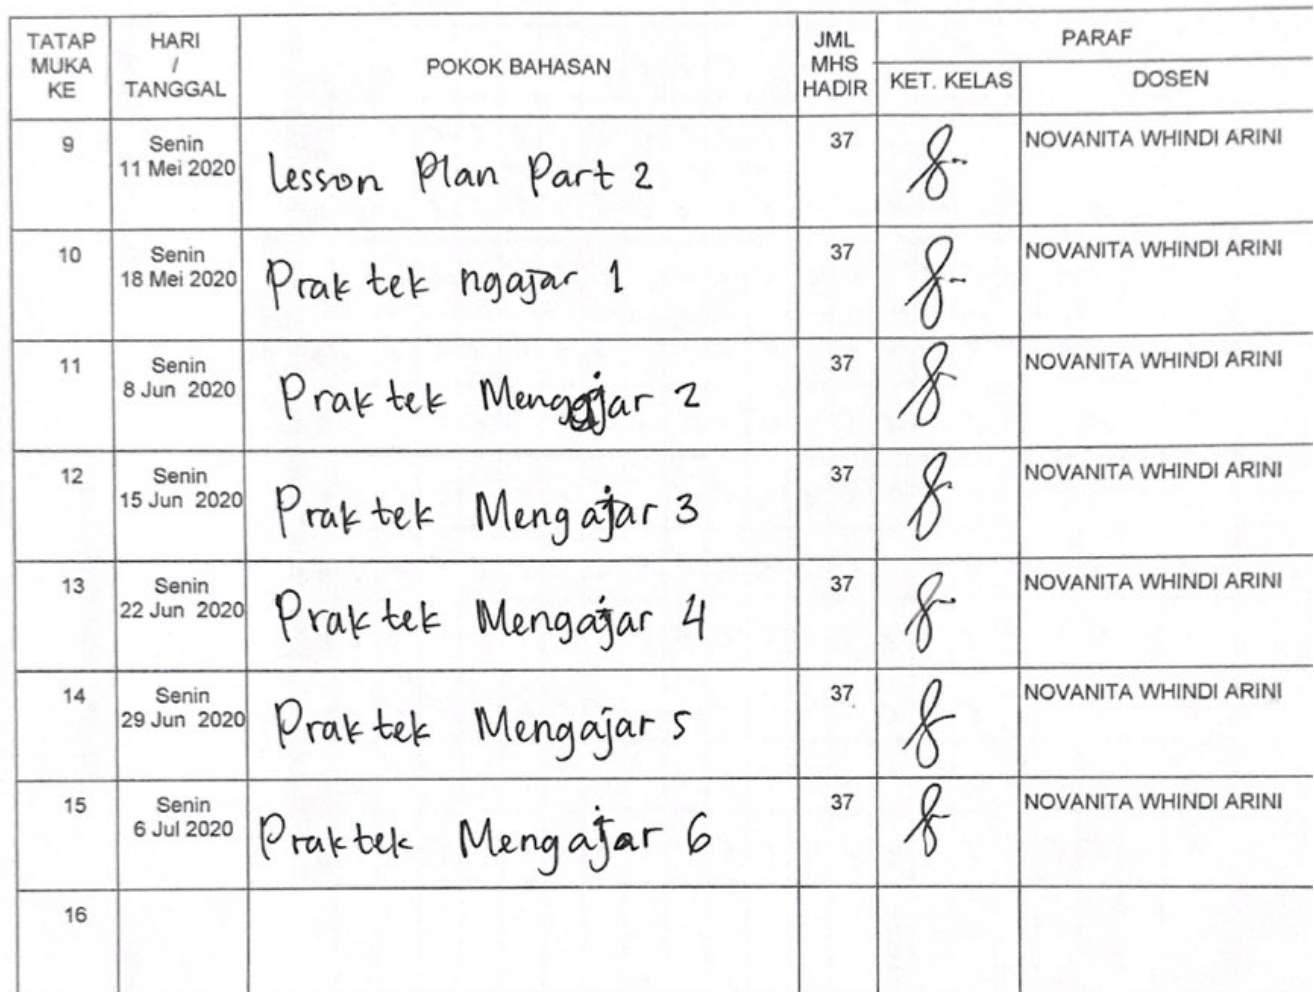 TATAP MUKA KE HARI / TANGGAL POKOK BAHASAN JML MHS HADIR PARAF
KET. KELAS DOSEN
9 Senin 11 Mei 2020 Lesson Plan Part 2 37 NOVANITA WHINDI ARINI
10 Senin 18 Mei 2020 Praktek ngajar 1 37 NOVANITA WHINDI ARINI
11 Senin 8 Jun 2020 Praktek Mengajar 2 37 NOVANITA WHINDI ARINI
12 Senin 15 Jun 2020 Praktek Mengajar 3 37 NOVANITA WHINDI ARINI
13 Senin 22 Jun 2020 Praktek Mengajar 4 37 NOVANITA WHINDI ARINI
14 Senin 29 Jun 2020 Praktek Mengajar 5 37 NOVANITA WHINDI ARINI
15 Senin 6 Jul 2020 Praktek Mengajar 6 37 NOVANITA WHINDI ARINI
16